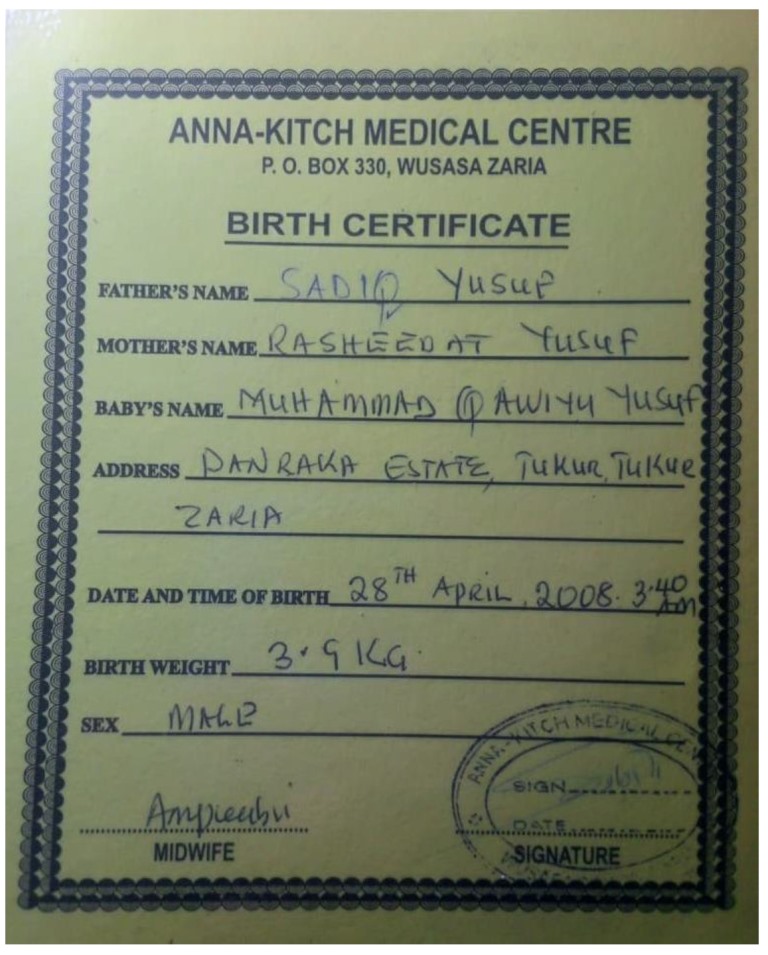 ANNA-KITCH MEDICAL CENTRE
P. O. BOX 330, WUSASA ZARIA
BIRTH CERTIFICATE
FATHER'S NAME SADIQ YUSUF
MOTHER'S NAME RASHEEDAT YUSUF
BABY'S NAME MUHAMMAD QAWIYU YUSUF
ADDRESS DANRAKA ESTATE, TUKUR, TUKUR
ZARIA
DATE AND TIME OF BIRTH 28TH APRIL, 2008. 3.40 AM
BIRTH WEIGHT 3.9 KG.
SEX MALE
ANNA-KITCH MEDICAL CEN
SIGN
DATE
MIDWIFE SIGNATURE